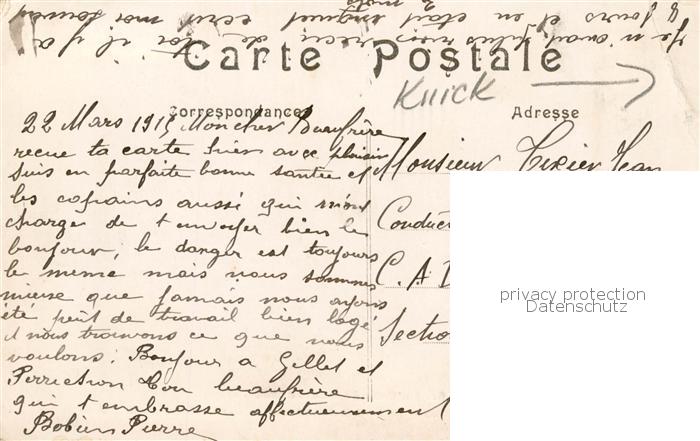 Je n'avais plus rien reçu de toi il y a
8 jours et en était inquiet ecrit moi souvent
2 mots
Carte Postale
Knick
Correspondance
Adresse
22 Mars 1915 Mon cher Beaufrère
recue ta carte hier avec plaisir
suis en parfaite bonne santée et
les copains aussi qui m'ont
charge de t envoyer bien le
bonjour, le danger est toujours
le meme mais nous sommes
mieux que jamais nous ayons
été peut de travail bien logé
et nous trouvons ce que nous
voulons. Bonjour a Gillet et
Perrichon Ton beaufrère
qui t embrasse affectueusement
Bobin Pierre
Monsieur Tixier Jean
Conduc
C. A D
Sectio
privacy protection
Datenschutz